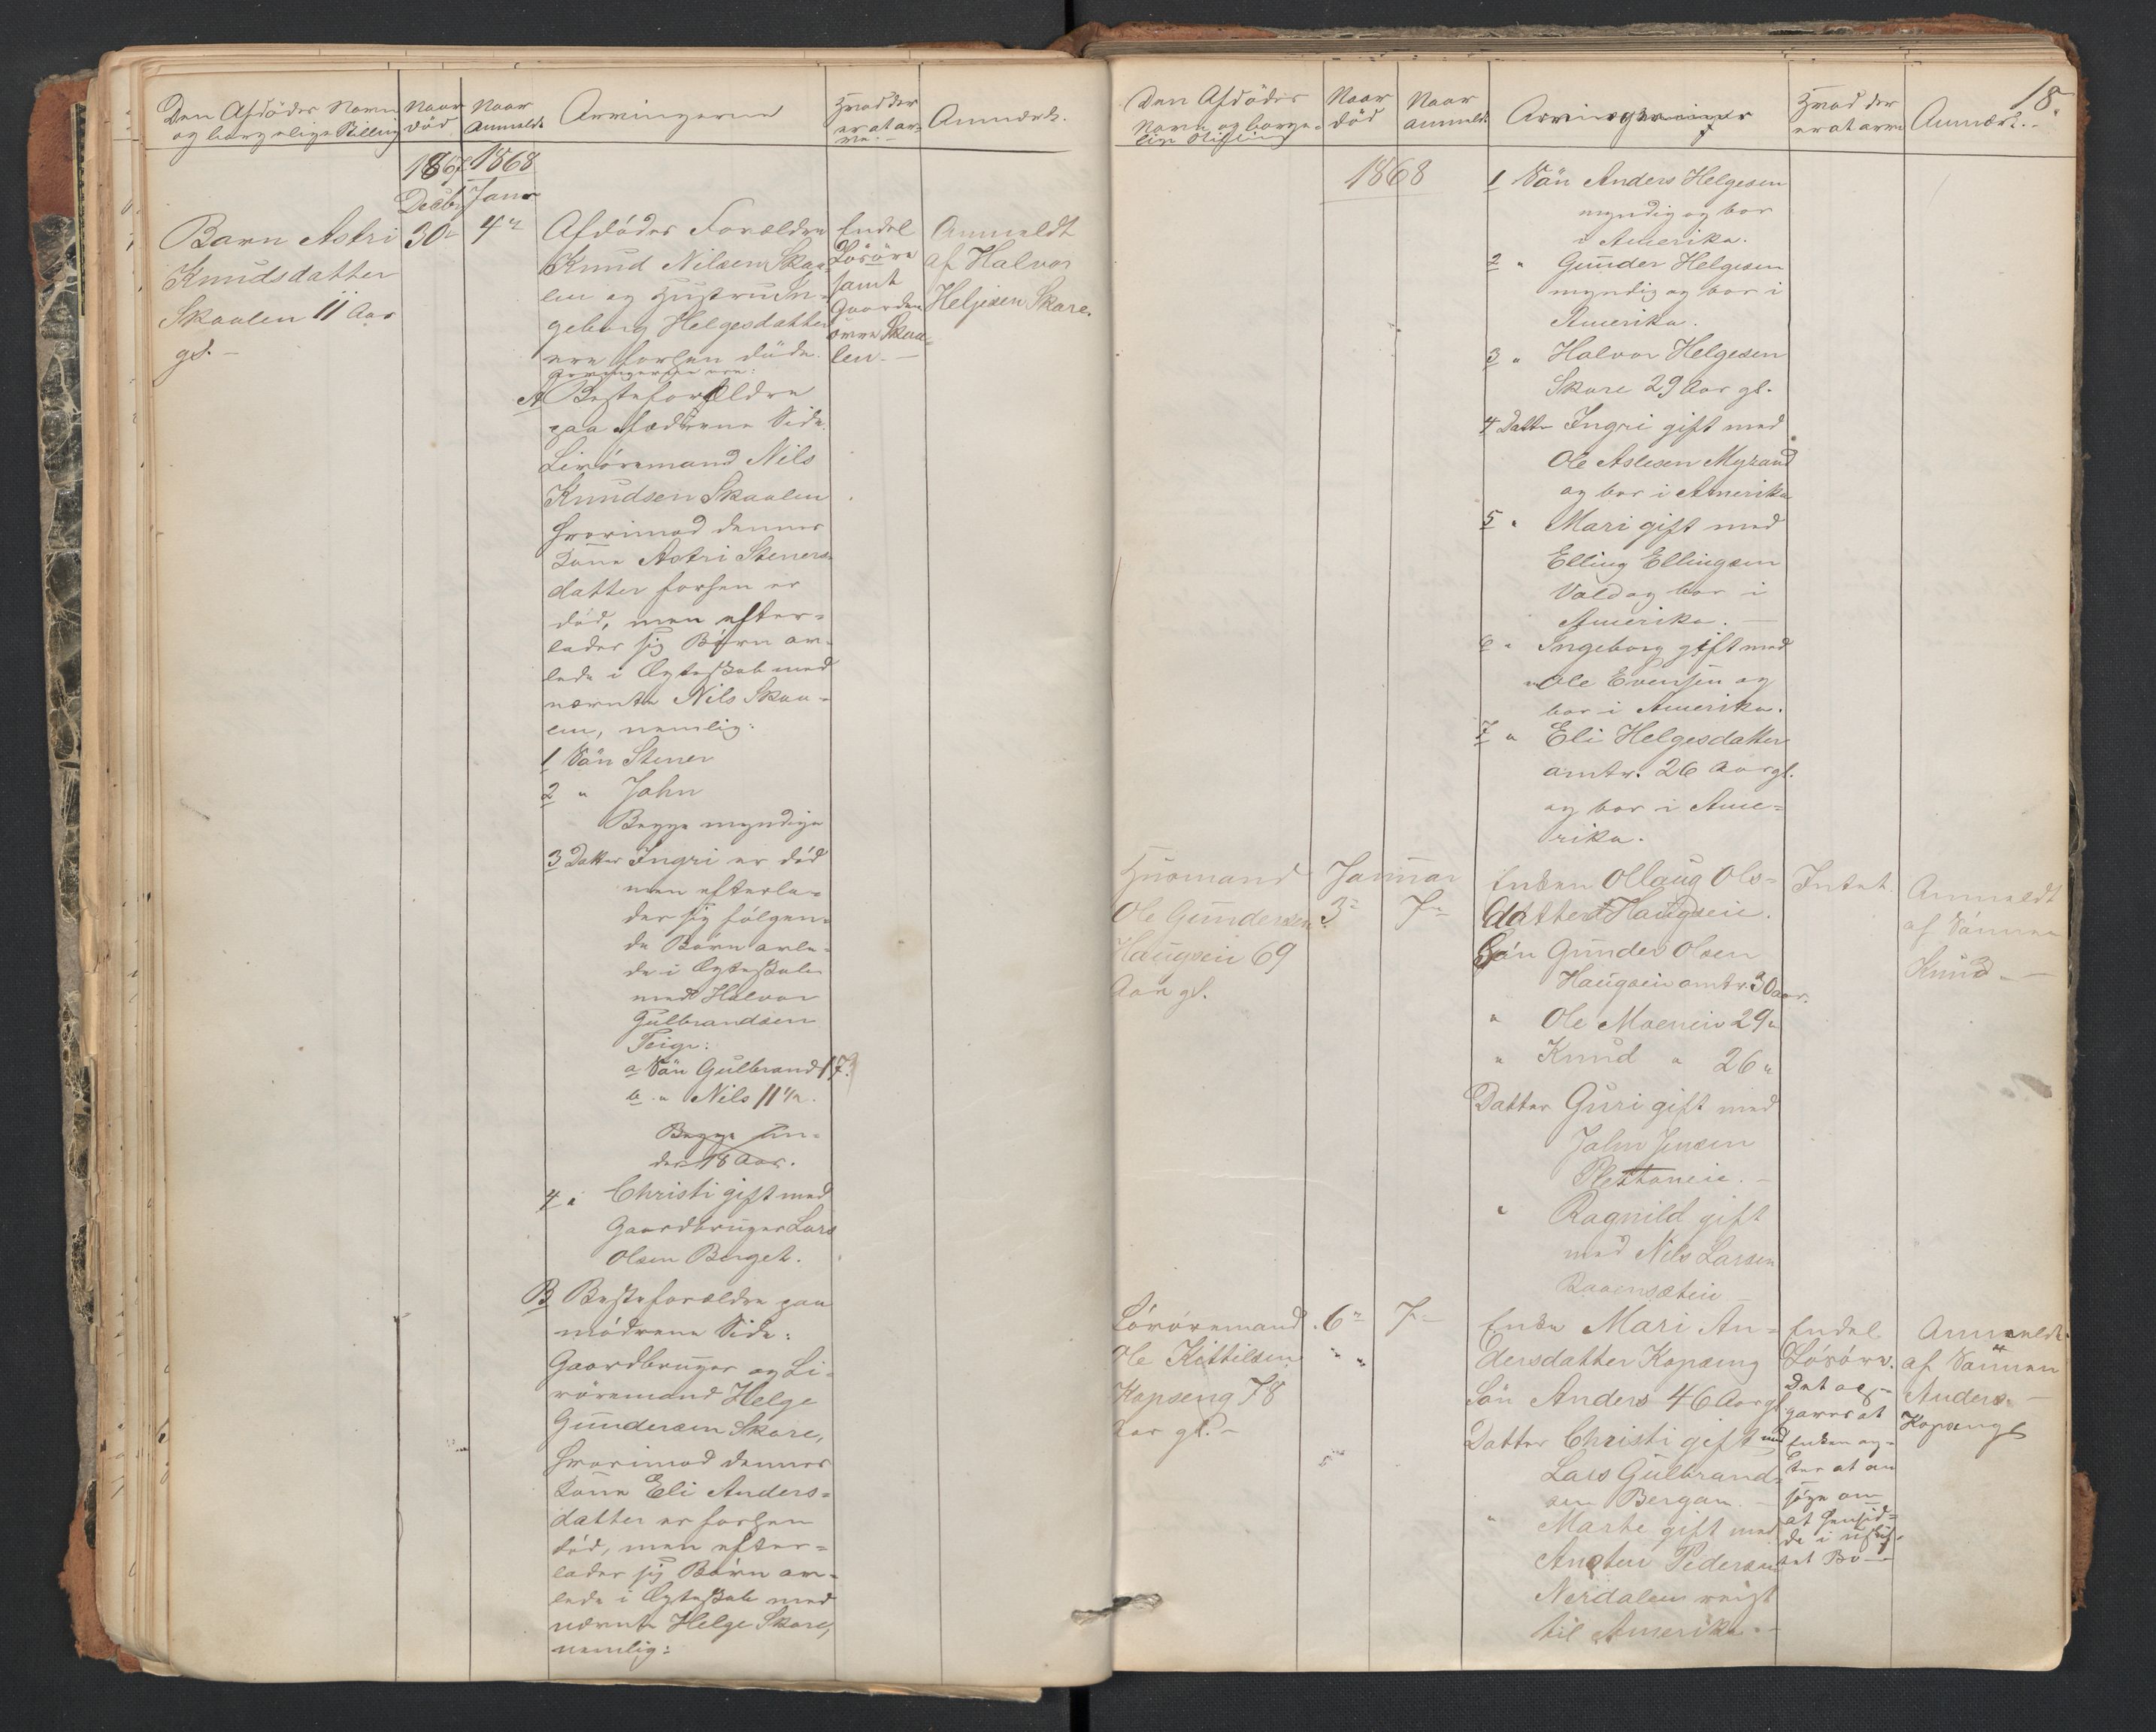 Den Afdödes Navn
og borgerlige Stilling
Naar
död
Naar
Anmeldt
Arvingerne
Hvad der
er at ar-
ve.-
Anmærk.
1867
Decbr
1868
Janr
Barn Astri
Knudsdatter
Skaalen 11 Aar
gl. -
30
4
Afdödes Forældre
Knud Nilsen Skaa-
len og Hustru In-
geborg Helgesdatter
ere forhen döde.
Arvingerne ere:
A Besteforældre
paa fædrene Side
Livöremand Nils
Knudsen Skaalen
hvorimod dennes
Kone Astri Steners-
datter forhen er
död, men efter-
lader sig Börn av-
lede i Ægteskab med
nævnte Nils Skaa-
len, nemlig:
1 Sön Stener
2 " John
Begge myndige
3 Datter Ingri er död
men efterla-
der sig fölgen-
de Börn avle-
de i Ægteskab
med Halvor
Gulbrandsen
Teige:
a Sön Gulbrand 17
b " Nils 11½.
Begge un-
der 18 Aar.
4 " Christi gift med
Gaardbruger Lars
Olsen Berget.
B Besteforældre paa
mödrene Side:
Gaardbruger og Li-
vöremand Helge
Gundersen Skare,
hvorimod dennes
Kone Eli Anders-
datter er forhen
död, men efter-
lader sig Börn av-
lede i Ægteskab med
nævnte Helge Skare,
nemlig:
Endel
Lösöre
samt
Gaarden
övre Skaa-
len. -
Anmeldt
af Halvor
Helgesen Skare.
18.
Den Afdödes
Navn og borger-
lige Stilling
Naar
död
Naar
anmeldt
Arvingerne
Hvad der
er at arve
Anmærk. -
1868
1 Sön Anders Helgesen
myndig og bor
i Amerika.
2 " Gunder Helgesen
myndig og bor i
Amerika.
3 " Halvor Helgesen
Skare 29 Aar gl.
4 Datter Ingri gift med
Ole Aslesen Myrand
og bor i Amerika
5 " Mari gift med
Elling Ellingsen
Vold og bor i
Amerika. -
6 " Ingeborg gift med
Ole Evensen og
bor i Amerika.
7 " Eli Helgesdatter
omtr. 26 Aar gl.
og bor i Ame-
rika.
Husmand
Ole Gundersen
Haugseie 69
Aar gl.
Januar
3
7
Enken Ollaug Ols-
datter Haugseie.
Sön Gunder Olsen
Haugseie omtr. 30 aar.
" Ole Moeneie 29 "
" Knud " 26 "
Datter Guri gift med
John Jensen
Plettaneie. -
" Ragnild gift
med Nils Larsen
Intet.
Anmeldt
af Sönnen
Knud -
Livöremand
Ole Kittilsen
Kopseng 78
Aar gl. -
6
7
Enke Mari An-
dersdatter Kopseng
Sön Anders 46 Aar gl
Datter Christi gift med
Lars Gulbrand-
sen Bergan. -
" Marte gift med
Ansten Pedersen
Nerdalen reist
til Amerika. -
Endel
Lösöre.
Det op-
gaves at
Enken ag-
ter at an-
söge om
at hensid-
de i uskif-
tet Bo -
Anmeldt
af Sönnen
Anders
Kopseng